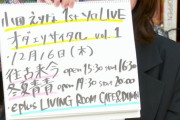 小坂えりな 1st Yo LIVE
オヴェリサイタル vol.1
12月16日(木)
往古来今 open 15:30 start 16:30
冬夏青青 open 19:30 start 20:00
eplus LIVING ROOM CAFE&DINING